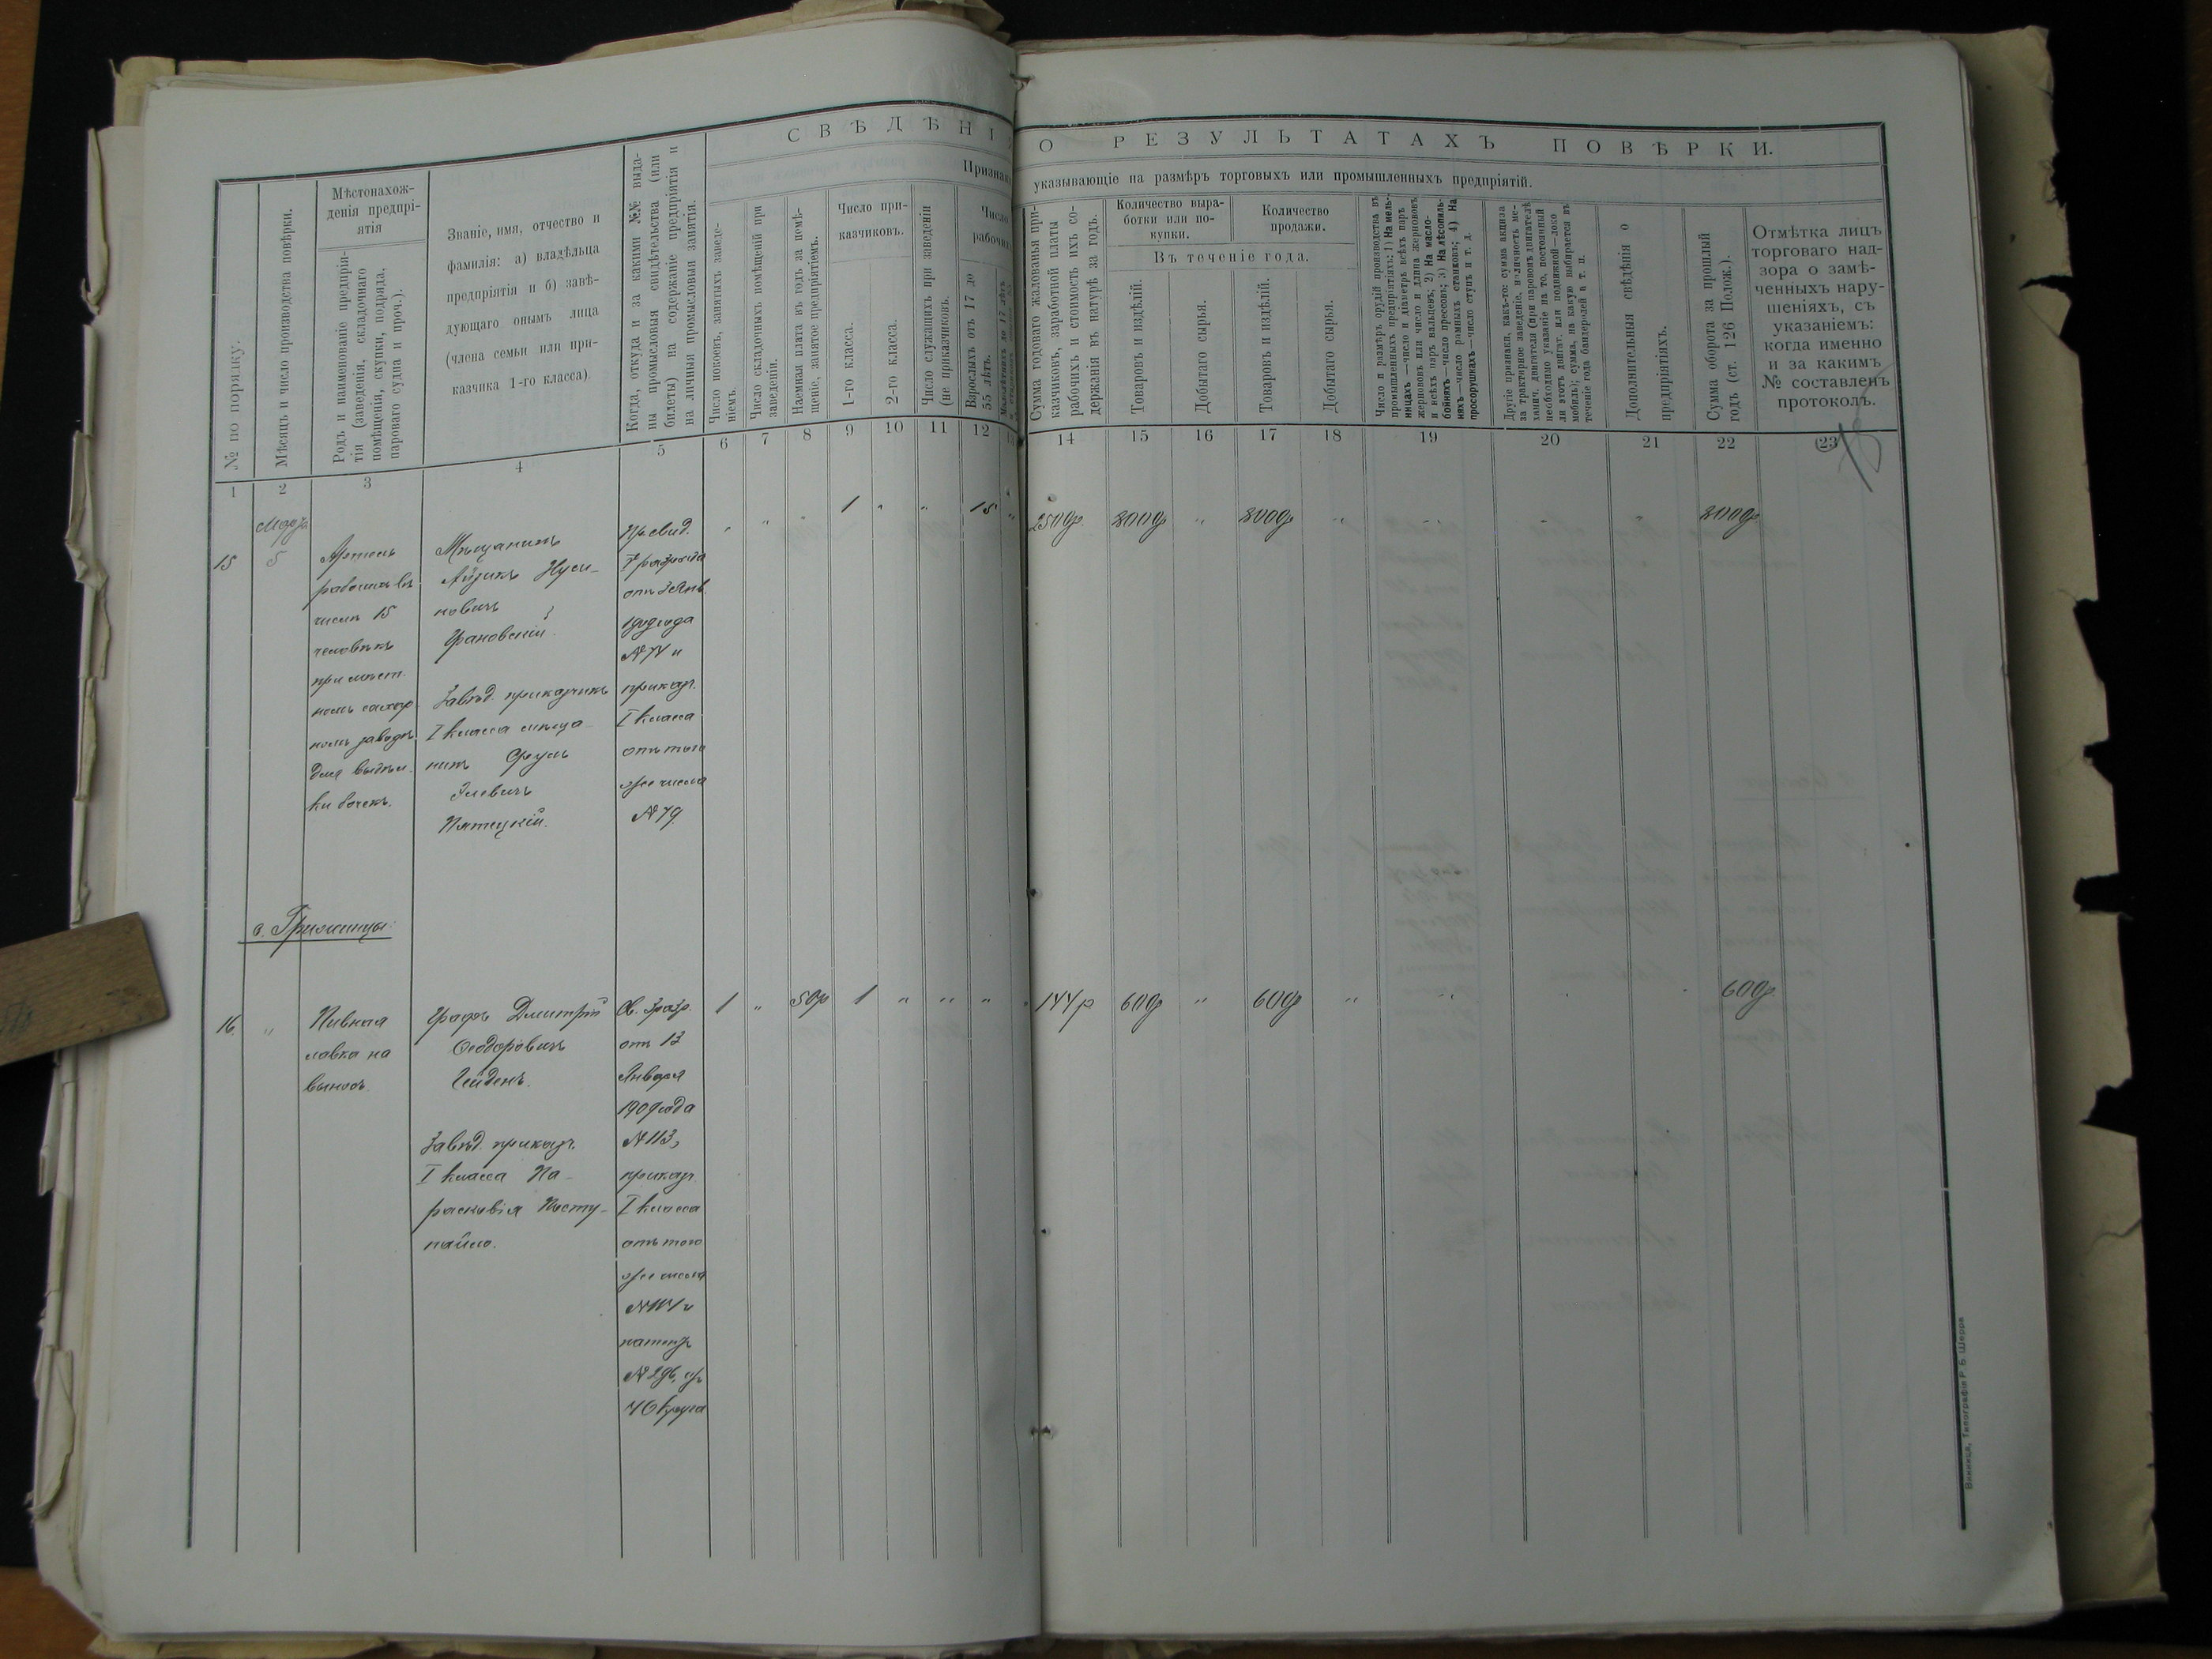 СВѢДѢНІЯ О РЕЗУЛЬТАТАХЪ ПОВѢРКИ.
указывающіе на размѣръ торговыхъ или промышленныхъ предпріятій.
№ по порядку.
Мѣсяцъ и число производства повѣрки.
Мѣстонахож-
денія предпрі-
ятія
Родъ и наименованіе предпрія-
тія (заведенія, складочнаго
помѣщенія, скупки, подряда,
парового судна и проч.).
Званіе, имя, отчество и
фамилія: а) владѣльца
предпріятія и б) завѣ-
дующаго онымъ лица
(члена семьи или при-
казчика 1-го класса).
Когда, откуда и за какими №№ выда-
ны промысловыя свидѣтельства (или
билеты) на содержаніе предпріятія и
на личныя промысловыя занятія.
Число покоевъ, занятыхъ заведе-
ніемъ.
Число складочныхъ помѣщеній при
заведеніи.
Наемная плата въ годъ за помѣ-
щеніе, занятое предпріятіемъ.
Число при-
казчиковъ.
1-го класса.
2-го класса.
Число служащихъ при заведеніи
(не приказчиковъ).
Число
рабочих
Взрослыхъ отъ 17 до
55 лѣтъ.
Сумма годоваго жалованья при-
казчиковъ, заработной платы
рабочихъ и стоимость ихъ со-
держанія въ натурѣ за годъ.
Количество выра-
ботки или по-
купки.
Количество
продажи.
Въ теченіе года.
Товаровъ и издѣлій.
Добытаго сырья.
Товаровъ и издѣлій.
Добытаго сырья.
Число и размѣръ орудій производства въ
промышленныхъ предпріятіяхъ: 1) На мель-
ницахъ—число и діаметръ всѣхъ паръ
жернововъ или число и длина жернововъ
и всѣхъ паръ вальцевъ; 2) На масло-
бойняхъ—число прессовъ; 3) На лѣсопиль-
няхъ—число рамныхъ станковъ; 4) На
просорушкахъ—число ступъ и т. д.
Другіе признаки, какъ-то: сумма акциза
за трактирное заведеніе, наличность ме-
ханич. двигателя (при паровомъ двигателѣ
необходимо указаніе на то, постоянный
ли этотъ двигат. или подвижной—локо
мобиль); сумма, на какую выбирается въ
теченіе года бандеролей и т. п.
Дополнительныя свѣдѣнія о
предпріятіяхъ.
Сумма оборота за прошлый
годъ (ст. 126 Полож.).
Отмѣтка лицъ
торговаго над-
зора о замѣ-
ченныхъ нару-
шеніяхъ, съ
указаніемъ:
когда именно
и за какимъ
№ составленъ
протоколъ.
1 2 3 4 5 6 7 8 9 10 11 12 14 15 16 17 18 19 20 21 22 23
Марта
15 5
Артель
рабочихъ въ
числѣ 15
человѣкъ
при мѣст
номъ сахар
номъ заводѣ
для выдѣл
ки бочекъ.
Мѣщанинъ
Айзикъ Нуси-
новичъ
Грановскій.
Завѣд. приказчикъ
I класса мѣща-
нинъ Фроимъ
Элевичъ
Пятецкій.
Пр. свид.
разряда
отъ 3 Янв
1909 года
N 74 и
приказ.
I класса
отъ того
же числа
N 79
" " " 1 " " 15 " 2500р 8000р " 8000р " " " " 8000р
с. Гримницы
16 "
Пивная
лавка на
выносъ
Графъ Дмитрій
Феодоровичъ
Гейденъ.
Завѣд. приказч.
I класса Па-
раскевія Посту-
пайло.
Св. 3 разр.
отъ 13
Января
1909 года
N 113,
приказ.
I класса
отъ того
же числа
N 114 и
патентъ
N 296,
4 округа
1 " 50р 1 " " " " 144р 600р " 600р " " 600р
Винница, Типографія Р. Б. Шерра